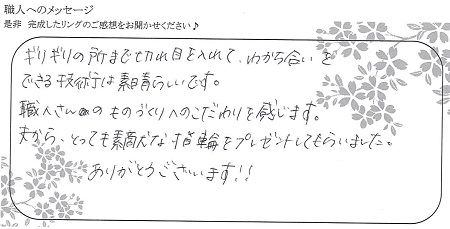 職人へのメッセージ
是非 完成したリングのご感想をお聞かせください♪
ギリギリの所まで切れ目を入れて、わから合いを
できる技術は素晴らしいです。
職人さんのものづくりへのこだわりを感じます。
夫から、とっても素敵な指輪をプレゼントしてもらいました。
ありがとうございます!!